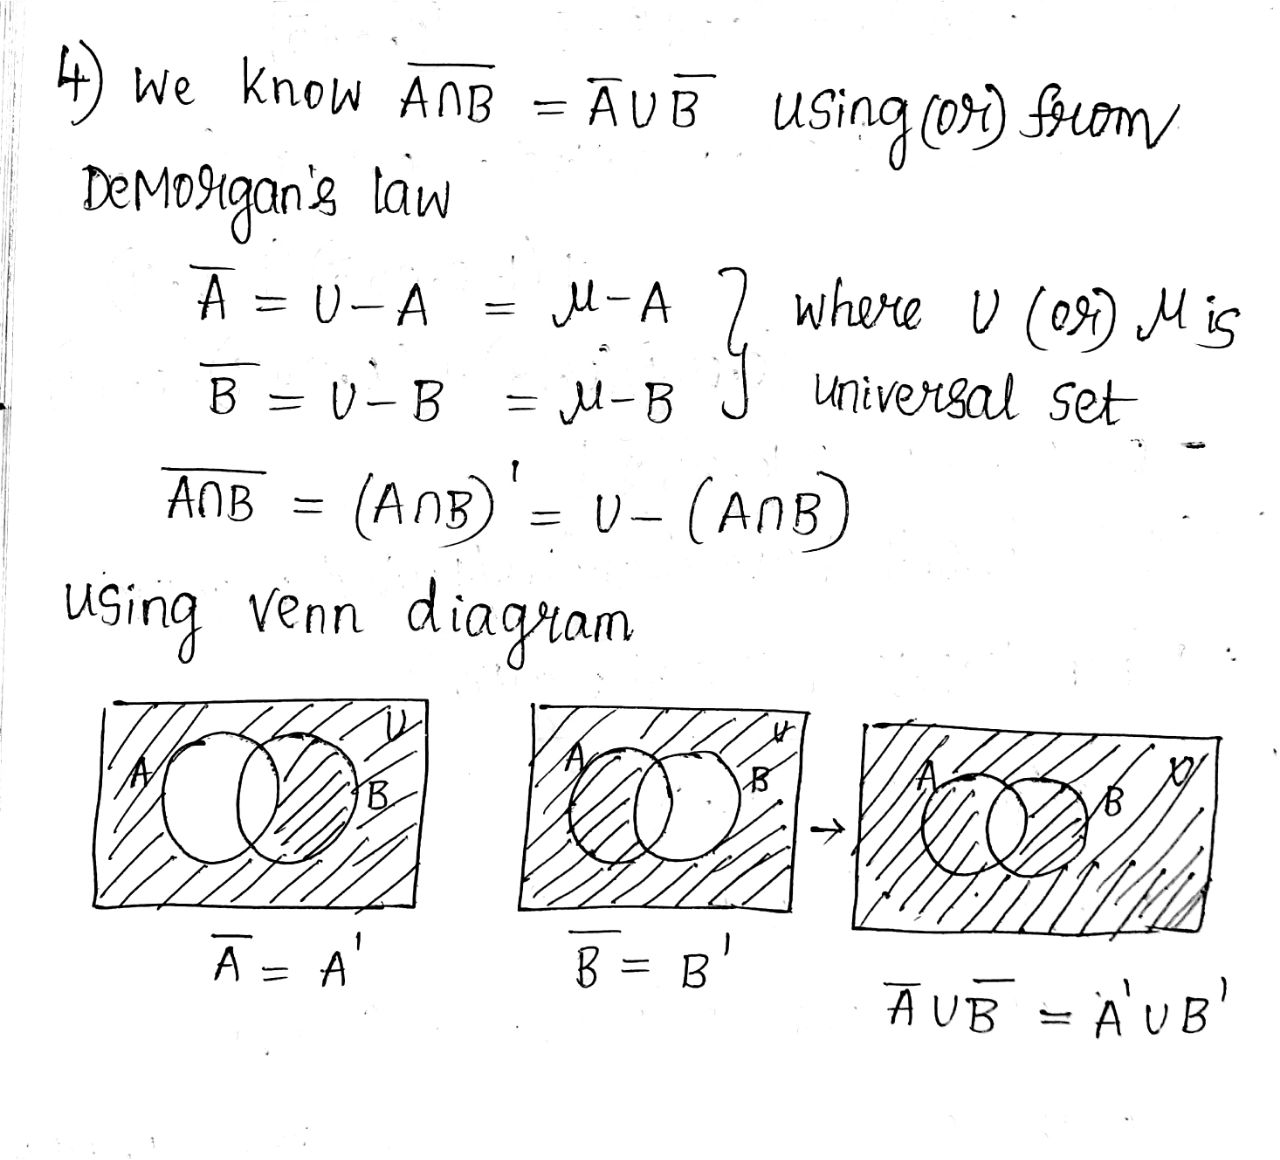 4) We know A̅∩̅B̅ = A̅ ∪ B̅ using (or) from
DeMorgan's law
A̅ = U – A = μ – A } where U (or) μ is
B̅ = U – B = μ – B } universal set
A̅∩̅B̅ = (A∩B)' = U – (A∩B)
using venn diagram
A U B
A U B
→
A U B
A̅ = A'
B̅ = B'
A̅ ∪ B̅ = A' ∪ B'